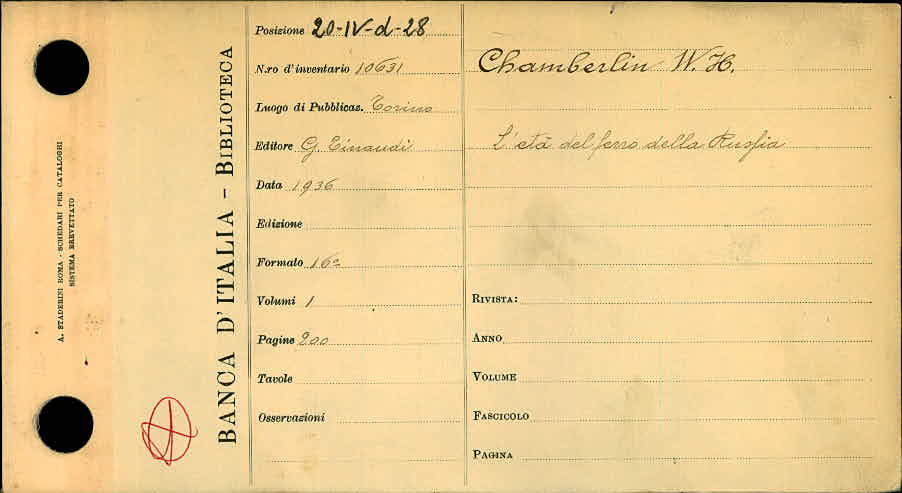 A. STADERINI ROMA - SCHEDARI PER CATALOGHI
SISTEMA BREVETTATO
BANCA D'ITALIA - BIBLIOTECA
Posizione 20-IV-d-28
N.ro d'inventario 10631
Luogo di Pubblicaz. Torino
Editore G. Einaudi
Data 1936
Edizione
Formato 16º
Volumi 1
Pagine 200
Tavole
Osservazioni
Chamberlin W. H.
L'età del ferro della Russia
RIVISTA:
ANNO
VOLUME
FASCICOLO
PAGINA